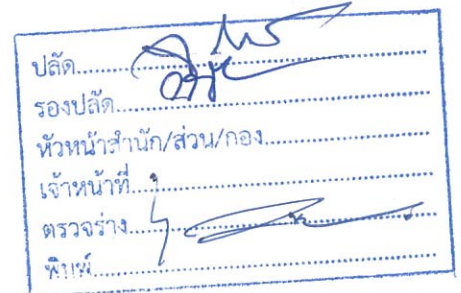 ปลัด
รองปลัด
หัวหน้าสำนัก/ส่วน/กอง
เจ้าหน้าที่
ตรวจร่าง
พิมพ์